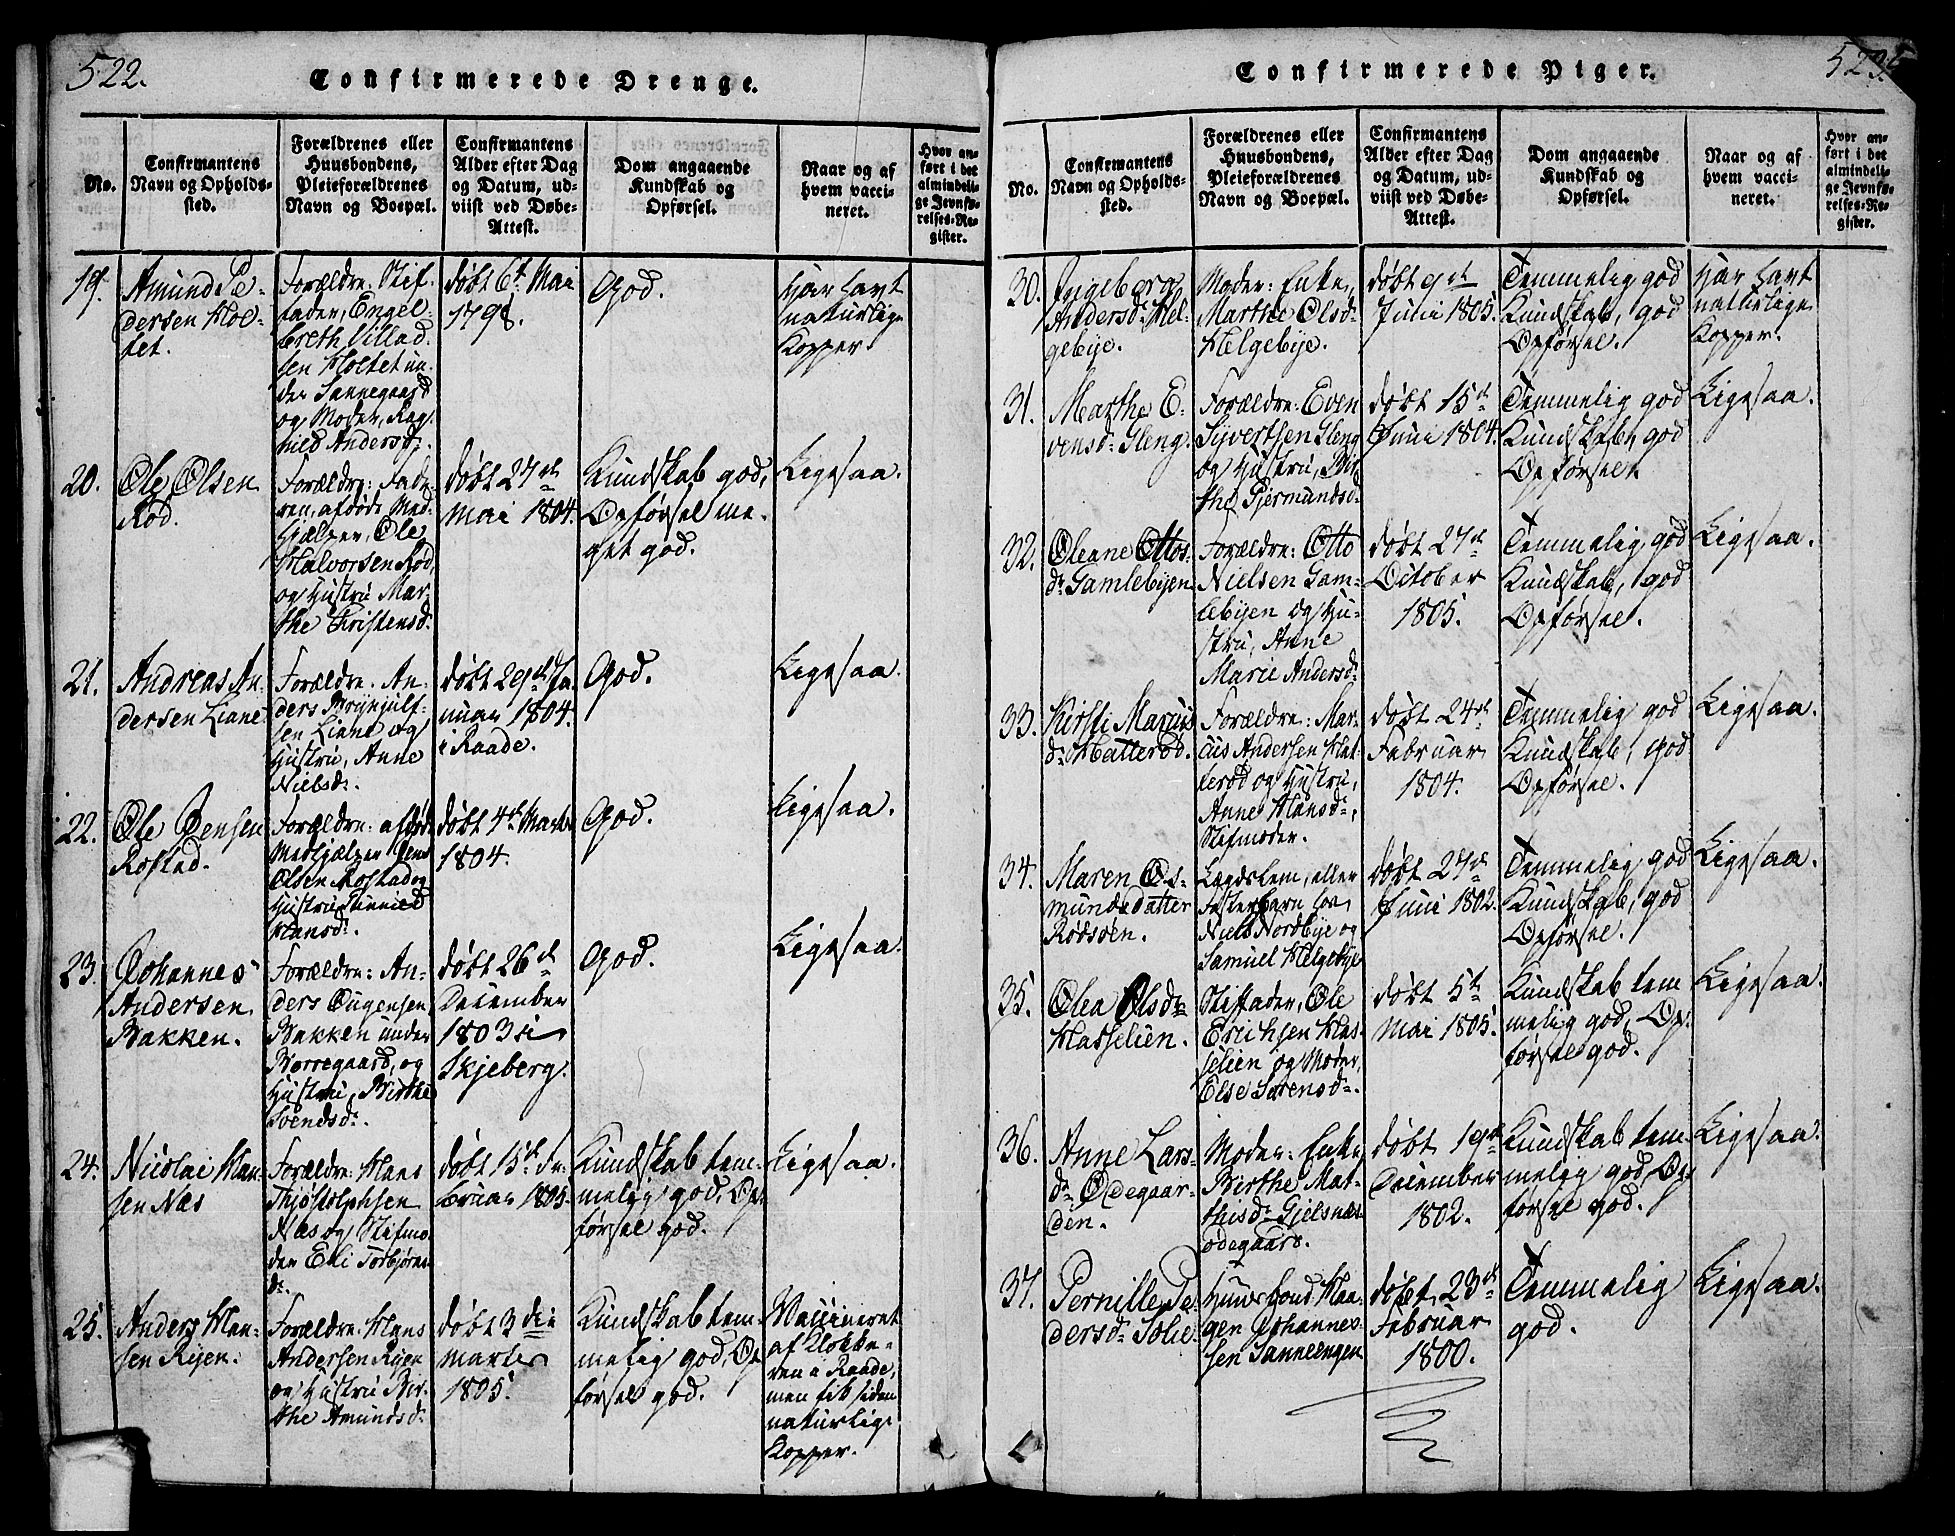 522.
Confirmerede Drenge.
No.
Confirmantens
Navn og Opholds-
sted.
Forældrenes eller
Huusbondens,
Pleieforældrenes
Navn og Boepæl.
Confirmantens
Alder efter Dag
og Datum, ud-
viist ved Døbe-
Attest.
Dom angaaende
Kundskab og
Opførsel.
Naar og af
hvem vacci-
neret.
Hvor an-
ført i det
almindeli-
ge Jevnfø-
relses-Re-
gister.
19.
Amund Pe-
dersen Hol-
tet.
Forældre: Stif-
fader, Engel-
breth Villad-
sen Holtet un-
der Sannegaard
og Moder, Rag-
nild Andersd.
døbt 6t Mai
1798.
God.
Har havt
naturlige
Kopper
20.
Ole Olsen
Rød.
Forældre: Fade-
ren, afdøde Med-
hjælper, Ole
Halvorsen Rød,
og Hustru Mar-
the Christensd.
døbt 27de
Mai 1804.
Kundskab god,
Opførsel me-
get god.
Ligesaa.
21.
Andreas An-
dersen Liane
Forældre: An-
ders Brynjulf-
sen Liane og
Hustru, Anne
Nielsd.
døbt 29de Ja-
nuar 1804.
i Raade.
God.
Ligesaa.
22.
Ole Jensen
Rostad.
Forældre: afdøde
Medhjælper Jens
Olsen Rostad og
Hustru Gunnild
Hansd.
døbt 4de Marts
1804.
God.
Ligesaa.
23.
Johannes
Andersen
Bakken.
Forældre: An-
ders Eugensen
Bakken under
Borregaard, og
Hustru, Birthe
Svendsd.
døbt 26de
December
1803 i
Skjeberg.
God.
Ligesaa.
24.
Nicolai Han-
sen Næs
Forældre: Hans
Thjøstolphsen
Næs og Stifmo-
der Eli Torbjørns-
d.
døbt 15de Fe-
bruar 1805.
Kundskab tem-
melig god, Op-
førsel god.
Ligesaa.
25.
Anders Han-
sen Ryen.
Forældre: Hans
Andersen Ryen
og Hustru Bir-
the Amundsd.
døbt 3die
Marts
1805.
Kundskab tem-
melig god, Op-
førsel god.
Vaccineret
af Klokke-
ren i Raade,
men fik siden
naturlige
Kopper.
523.
Confirmerede Piger.
No.
Confirmantens
Navn og Opholds-
sted.
Forældrenes eller
Huusbondens,
Pleieforældrenes
Navn og Boepæl.
Confirmantens
Alder efter Dag
og Datum, ud-
viist ved Døbe-
Attest.
Dom angaaende
Kundskab og
Opførsel.
Naar og af
hvem vacci-
neret.
Hvor an-
ført i det
almindeli-
ge Jevnfø-
relses-Re-
gister.
30.
Ingeborg
Andersd. Hel-
gebye.
Moder: Enke,
Marthe Olsd.
Helgebye.
døbt 9de
Juni 1805.
Temmelig god
Kundskab, god
Opførsel.
Har havt
naturlige
Kopper.
31.
Marthe E-
vensd. Gleng.
Forældre: Even
Syvertsen Gleng
og Hustru, Bir-
the Gjermundsd.
døbt 15de
Juni 1804.
Temmelig god
Kundskab, god
Opførsel.
Ligesaa.
32.
Oleane Ottos-
dr. Gamlebyen
Forældre: Otto
Nielsen Gam-
lebyen og Hu-
stru, Anne
Marie Andersd.
døbt 27de
October
1805.
Temmelig god
Kundskab, god
Opførsel.
Ligesaa.
33.
Kirsti Marcus-
dr. Hatterød.
Forældre: Mar-
cus Andersen Hat-
terød og Hustru,
Anne Hansd.,
Stifmoder.
døbt 24de
Februar
1804.
Temmelig god
Kundskab, god
Opførsel.
Ligesaa.
34.
Maren Os-
mundsdatter
Rødsøen.
Lægdslem, eller
Fosterbarn hos
Niels Nordbye og
Samuel Helgebye
døbt 27de
Juni 1802.
Temmelig god
Kundskab, god
Opførsel.
Ligesaa.
35.
Olea Olsdr.
Hasselien.
Stiffader, Ole
Erichsen Has-
selien og Moder,
Else Sørensd.
døbt 5te
Mai 1805.
Kundskab tem
melig god, Op-
førsel god.
Ligesaa.
36.
Anne Lars-
dr. Ødegaar-
den.
Moder: Enke,
Birthe Mat-
thisd. Gjelsnæs-
ødegaard.
døbt 19de
December
1802.
Kundskab tem-
melig god, Op-
førsel god.
Ligesaa.
37.
Pernille Pe-
dersd. Solie
Huusbond Haa-
gen Johannes-
sen Sanneengen
døbt 23de
Februar
1800.
Temmelig
god.
Ligesaa.